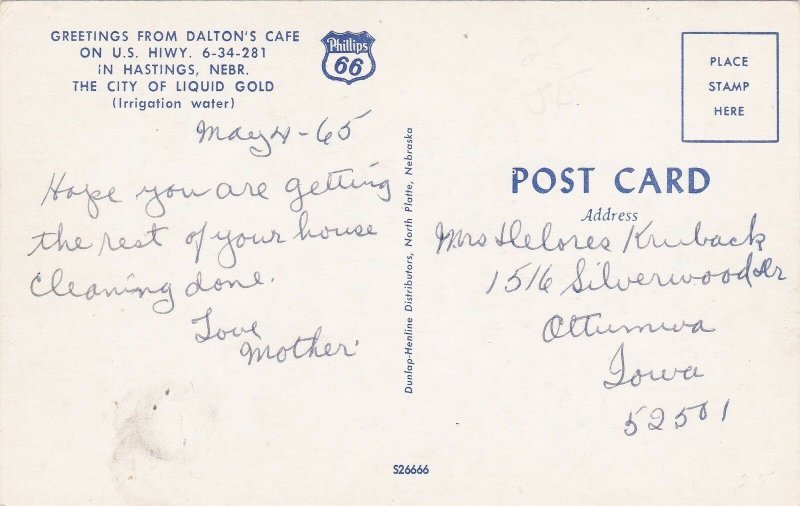 GREETINGS FROM DALTON'S CAFE
ON U.S. HIWY. 6-34-281
IN HASTINGS, NEBR.
THE CITY OF LIQUID GOLD
(Irrigation water)
Phillips
66
May 4-65
Hope you are getting
the rest of your house
cleaning done.
Love
Mother
Dunlap-Henline Distributors, North Platte, Nebraska
S26666
PLACE
STAMP
HERE
POST CARD
Address
Mrs Delores Kruback
1516 Silverwood Dr
Ottumwa
Iowa
52501